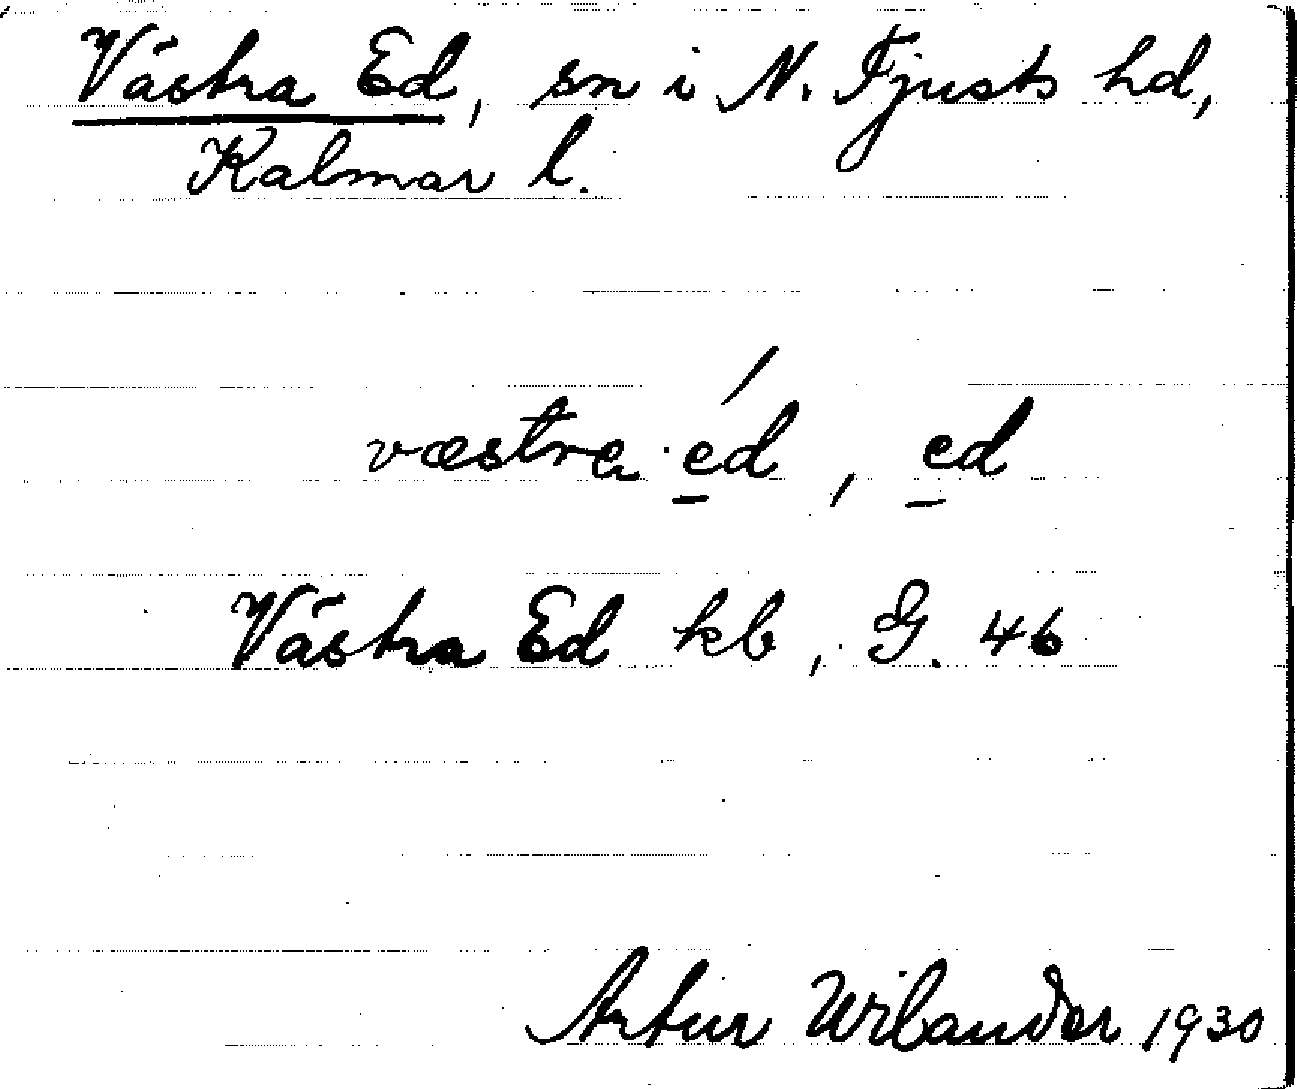 Västra Ed, sn i N. Tjusts hd,
Kalmar l.
væstra ed, ed
Västra Ed kb, G. 46
Artur Wilander 1930